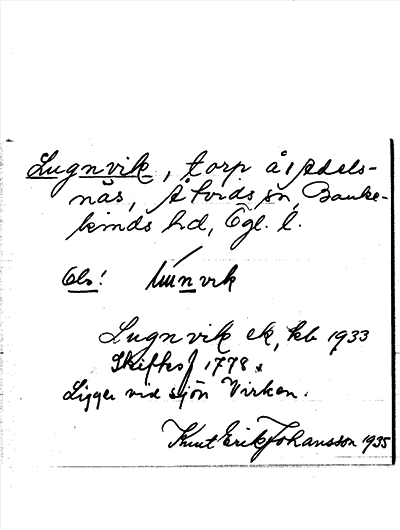 Lugnvik, torp å Adels-
näs, Åtvids sn, Banke-
kinds hd, Ögl. l.
Obs!
Lugnvik ek, kb 1933
Skifts 1778.
Ligger vid sjön Virken.
Knut Erik Johansson 1935